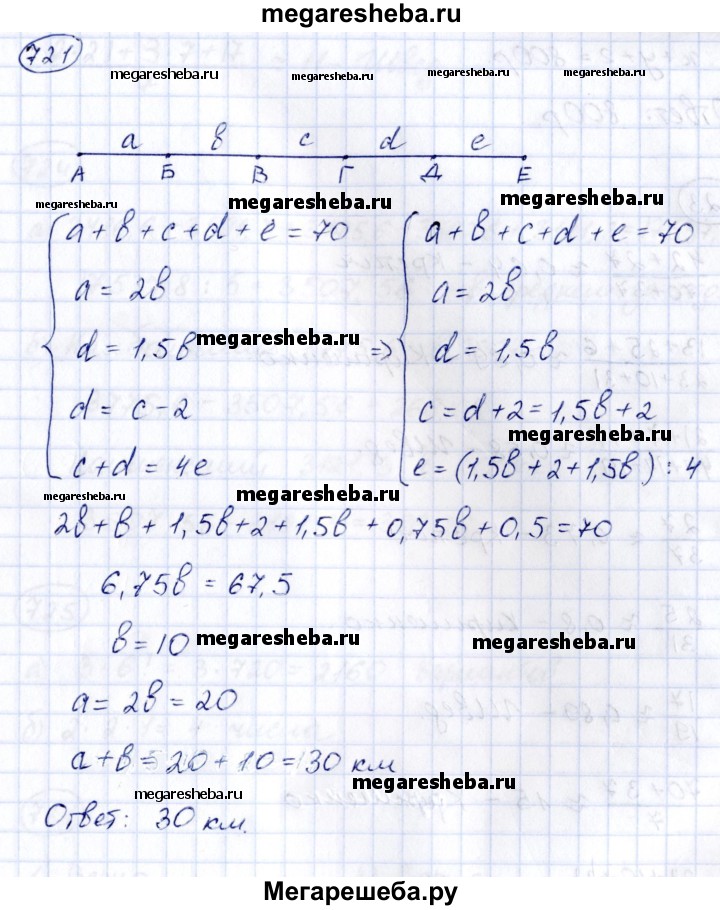 megaresheba.ru
721
megaresheba.ru megaresheba.ru megaresheba.ru
a в c d e
А Б В Г Д Е
megaresheba.ru megaresheba.ru megaresheba.ru
a + в + c + d + e = 70 a + в + c + d + e = 70
a = 2в a = 2в
d = 1,5в megaresheba.ru => d = 1,5в
d = c - 2 c = d + 2 = 1,5в + 2
megaresheba.ru
c + d = 4e e = (1,5в + 2 + 1,5в) : 4
megaresheba.ru megaresheba.ru
2в + в + 1,5в + 2 + 1,5в + 0,75в + 0,5 = 70
6,75в = 67,5
в = 10 megaresheba.ru megaresheba.ru
a = 2в = 20
a + в = 20 + 10 = 30 км
megaresheba.ru megaresheba.ru
Ответ: 30 км.
Мегарешеба.ру